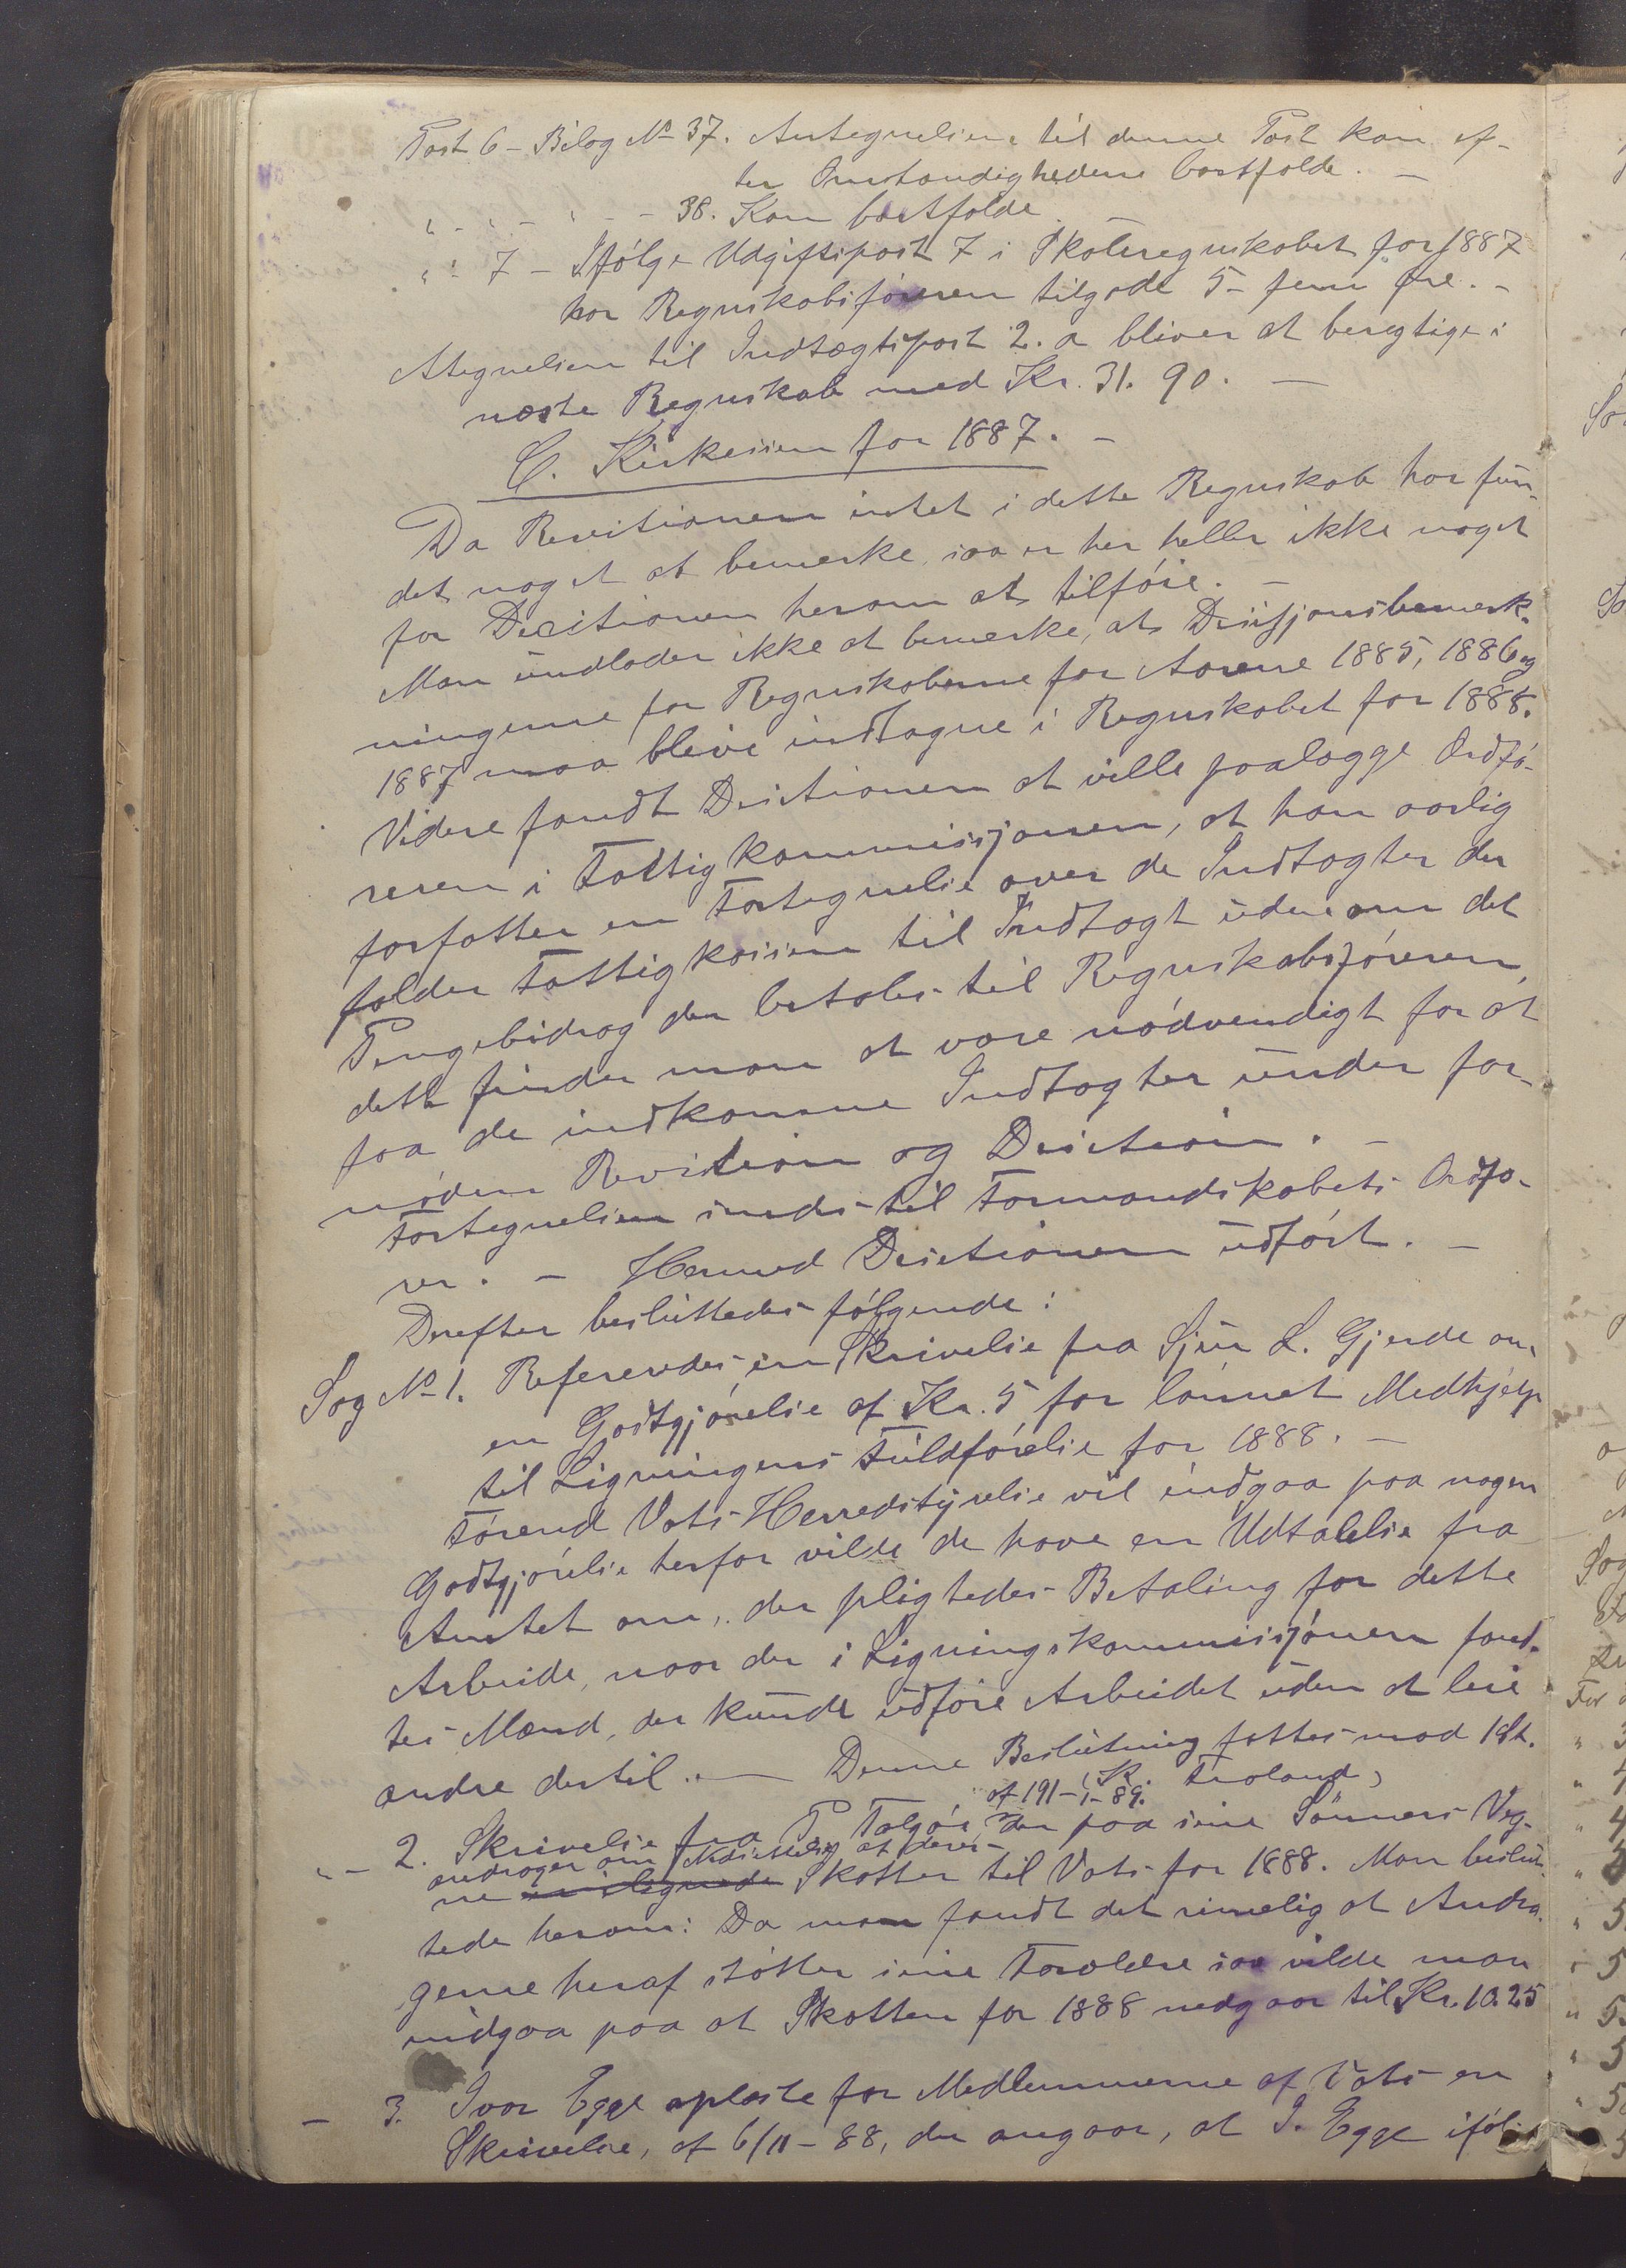 Post 6 - Bilog № 37. Antegnelsen til denne Post kan ef-
ter Omstændighederne bortfalde. -
" - " - " - - 38. Kan bortfalde. -
" - 7 - Ifølge Udgiftspost 7 i Skoleregnskabet for 1887
har Regnskabsføreren tilgode 5 - fem øre. -
Ategnelsen til Indtægtspost 2. a bliver at beregtige i
næste Regnskab med Kr. 31. 90. -
C. Kirkessen for 1887. -
Da Revitionen intet i dette Regnskab har fun-
det noget at bemerke, saa er her heller ikke noget
for Decitionen herom at tilføie. -
Man undlader ikke at bemerke, at Desisjonsbemerk-
ningerne for Regnskaberne for Aarene 1885, 1886 og
1887 maa blive indtagne i Regnskabet for 1888.
Videre fandt Desitionen at ville paalægge Ordfø-
reren i Fattigkommissjonen, at han aarlig
forfatter en Fortegnelse over de Indtægter der
falder Fattigkassen til Indtægt udenom det
Pengebidrag der betales til Regnskabsføreren,
dette finder man at være nødvendigt for at
faa de indkomne Indtægter under for-
nøden Revition og Desition. -
Fortegnelsen sendes til Formandskabets Ordfø-
rer. - Hermed Desitionen udført. -
Derefter besluttedes følgende:
Sag № 1. Referredes en Skrivelse fra Sjur L. Gjerde om
en Godtgjørelse af Kr. 5 for lønnet Medhjelp
til Ligningens Fuldførelse for 1888. -
Førend Vats Herredstyrelse vil indgaa paa nogen
Godtgjørelse herfor vilde de have en Udtalelse fra
Amtet om, der pligtedes Betaling for dette
Arbeide, naar der i Ligningskommissjonen fand-
tes Mænd, der kunde udføre Arbeidet uden at leie
andre dertil. - Denne Beslutning fattes mod 1 St.
(K. Frøland)
af 191-1-89.
" - 2. Skrivelse fra P. der paa sine Sønners Veg-
andrager om Nedsættelse af deres
ne Skatter til Vats for 1888. Man beslut-
tede herom: Da man fandt det rimelig at Andra-
gerne heraf støtter sine Forældre saa vilde man
indgaa paa at Skatten for 1888 nedgaar til Kr. 10.25
- 3. Ivar Egge oplæste for Medlemmerne af Vats en
Skrivelse, af 6/11 - 88, der angaar, at I. Egge iføl-